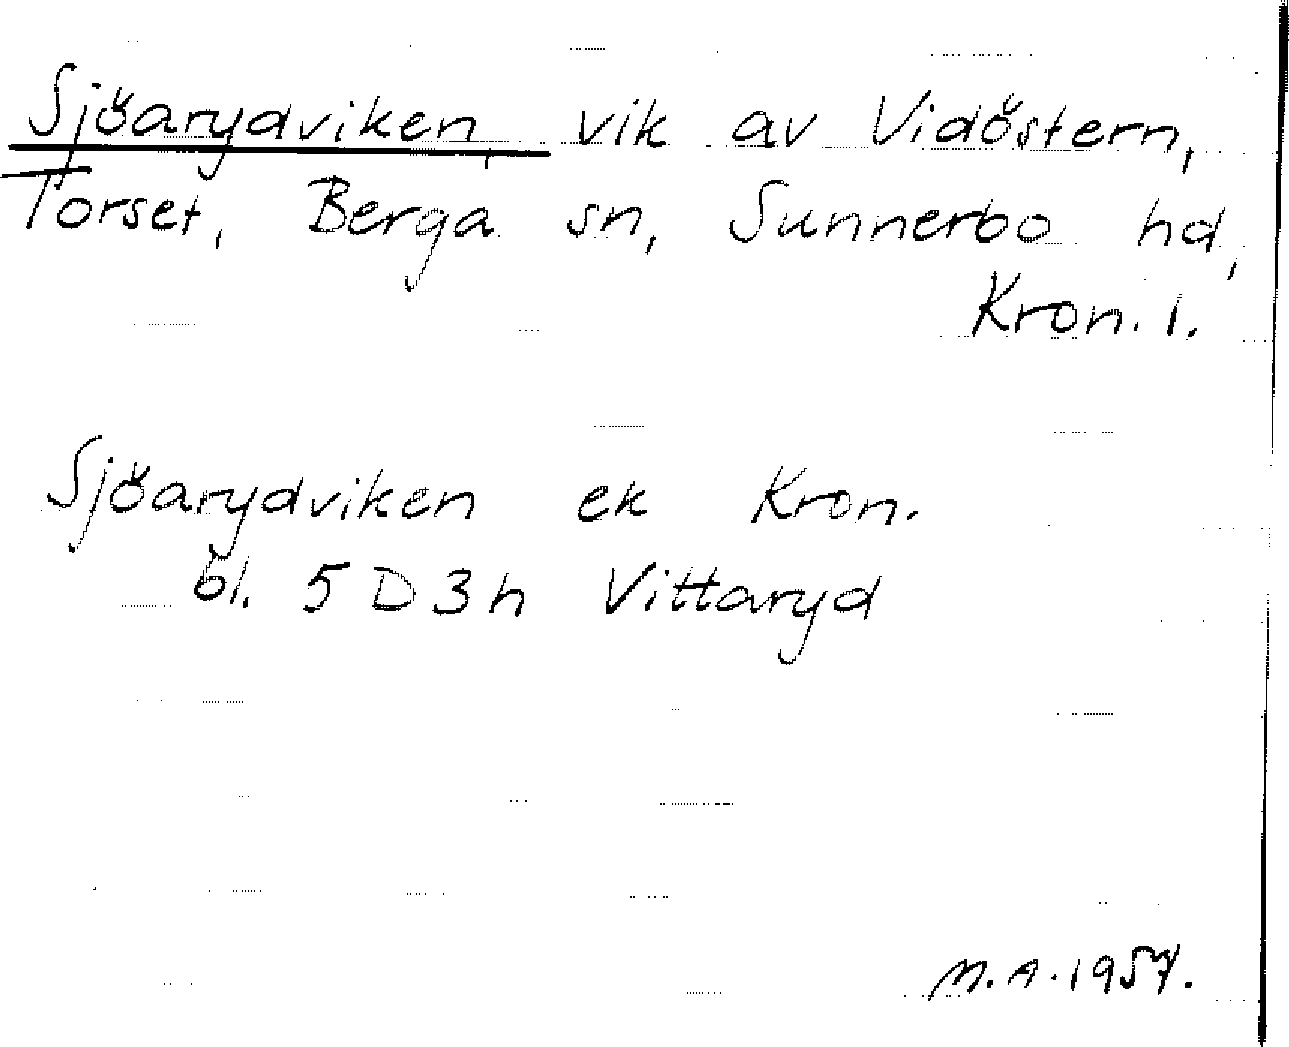 Sjöarydviken, vik av Vidöstern,
Torset, Berga sn, Sunnerbo hd,
Kron. l.
Sjöarydviken ek Kron.
bl. 5 D 3 h Vittaryd
M.A. 1957.